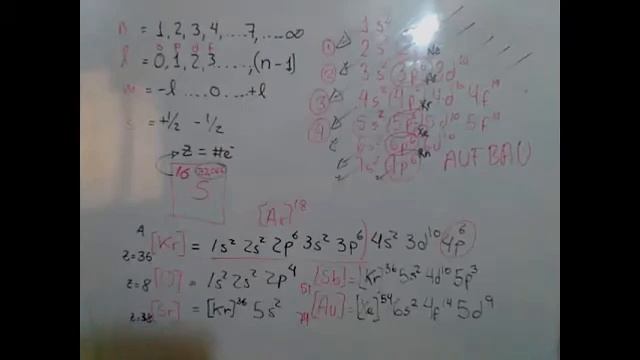 n = 1, 2, 3, 4, ....7, .....∞
s p d f
l = 0, 1, 2, 3....., (n-1)
m = -l ....0 ... +l
s = +1/2 -1/2
z = #e⁻
16
S
1s²
① 2s² Ne
② 3s² 3p⁶ 3d¹⁰ Ar
③ 4s² 4p⁶ 4d¹⁰ 4f¹⁴ Kr
④ 5s² 5p⁶ 5d¹⁰ 5f¹⁴ Xe
6s² 6p⁶ 6d¹⁰ Rn
7s² 7p⁶
AUFBAU
[Ar]¹⁸
z=36 [Kr] = 1s² 2s² 2p⁶ 3s² 3p⁶ 4s² 3d¹⁰ 4p⁶
z=8 [O] = 1s² 2s² 2p⁴
51 [Sb] = [Kr]³⁶ 5s² 4d¹⁰ 5p³
z=38 [Sr] = [Kr]³⁶ 5s²
79 [Au] = [Xe]⁵⁴ 6s² 4f¹⁴ 5d⁹